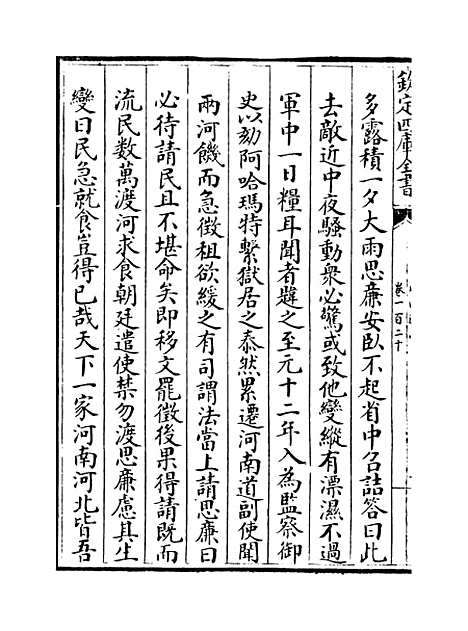 欽定四庫全書
卷一百二十
多露積一夕大雨思亷安臥不起省中召詰答曰此
去敵近中夜騷動衆必驚或致他變縱有漂濕不過
軍中一日糧耳聞者韙之至元十二年入為監察御
史以劾阿哈瑪特繫獄居之泰然累遷河南道副使聞
兩河饑而急徴租欲緩之有司謂法當上請思亷曰
必待請民且不堪命矣即移文罷徴後果得請既而
流民數萬渡河求食朝廷遣使禁勿渡思亷慮其生
變曰民急就食豈得已哉天下一家河南河北皆吾